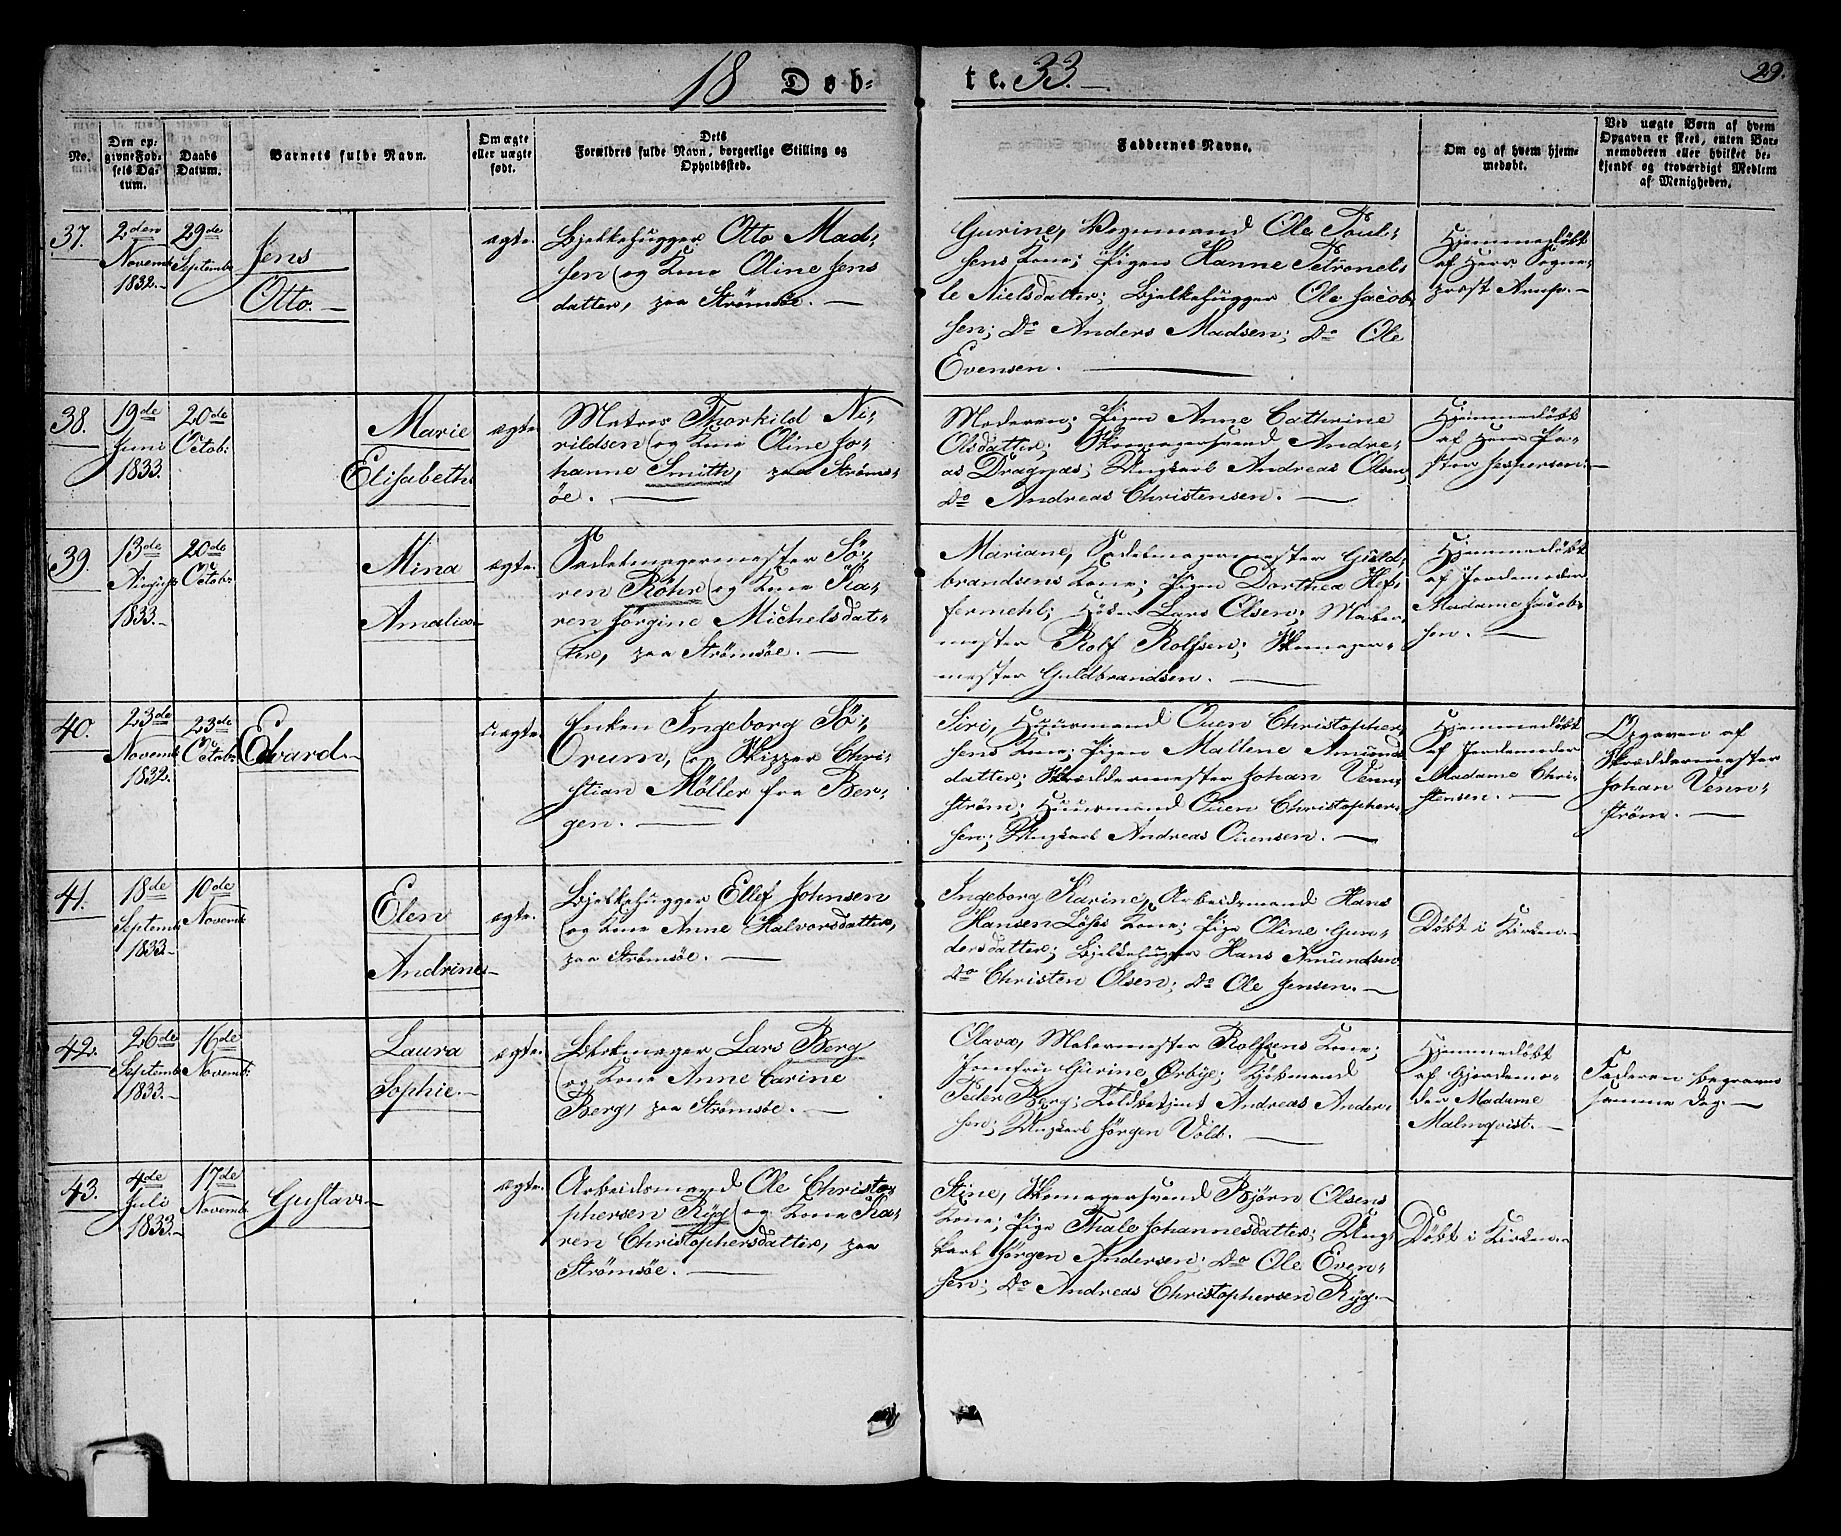 18 Døb-
te. 33.
29.
No.
Den op-
givne Fød-
sels Da-
tum.
Daabs
Datum.
Barnets fulde Navn.
Om ægte
eller uægte
født.
Dets
Forældres fulde Navn, borgerlige Stilling og
Opholdssted.
Faddernes Navne.
Om og af hvem hjem-
medøbt.
Ved uægte Børn af hvem
Opgaven er skeet, enten Bar-
nemoderen eller hvilket be-
kjendt og troværdigt Medlem
af Menigheden.
37.
2den
Novemb
1832.
29de
Septemb
Jens
Otto.
ægte.
Bjelkehugger Otto Mad-
sen og Kone Oline Jens
datter, paa Strømsøe.
Gurine, Vognmand Ole Poul-
sens Kone; Pigen Hanne Petronel-
le Nielsdatter; Bjelkehugger Ole Jacob
sen; Do Anders Madsen; Do Ole
Evensen.
Hjemmedøbt
af Herr Sogne-
præst Arup.
38.
19de
Juni
1833.
20de
Octob:
Marie
Elisabeth
ægte.
Matros Thorkild Ni-
rildsen og Kone Oline Jo-
hanne Smith, paa Strøms-
øe.
Moderen; Pigen Anne Cathrine
Olsdatter; Skomagersvend Andre-
as Dragnæs; Ungkarl Andreas Olsen,
Do Andreas Christensen.
Hjemmedøbt
af Herr Pa-
stor Jespersen.
39.
13de
August
1833.
20de
Octob:
Mina
Amalia
ægte.
Sadelmagermester Sø-
ren Röhr og Kone Ka-
ren Jørgine Michelsdat-
ter, paa Strømsøe.
Mariane, Sadelmagermester Guld-
brandsens Kone; Pigen Dorthea Hef-
fermehl; Lars Olsen; Maler-
mester Rolf Rolfsen; Skomager-
mester Guldbrandsen.
Hjemmedøbt
af Jordemoder
Madame Jacob-
sen.
40.
23de
Novemb
1832.
23de
Octob:
Edvard
uægte.
Enken Ingeborg Sø-
Orum, og Skipper Chri-
stian Møller fra Ber-
gen.
Siri, Huusmand Ouen Christopher-
sens Kone; Pigen Mallene Amunds
datter; Skræddermester Johan Venn-
strøm; Huusmand Ouen Christopher-
sen; Ungkarl Andreas Ouensen.
Hjemmedøbt
af Jordemoder
Madame Chri-
stensen.
Opgaven af
Skræddermester
Johan Venn-
strøm.
41.
18de
Septemb
1833.
10de
Novemb
Elen
Andrine
ægte.
Bjelkehugger Ellef Johnsen
og Kone Anne Halvorsdatter,
paa Strømsøe.
Ingeborg Karine, Arbeidsmand Hans
Hansen Kone; Pige Oline Gun-
dersdatter; Bjelkehugger Hans Amundsen
Do Christen Olsen; Do Ole Jensen.
Døbt i Kirken.
42.
26de
Septemb
1833.
16de
Novemb:
Laura
Sophie.
ægte.
Lars Berg
og Kone Anne Carine
Berg, paa Strømsøe.
Olava, Malermester Rolfsens Kone;
Jomfru Gurine Ørbye; Kjøbmand
Peder Berg; Andreas Ander-
sen; Ungkarl Jørgen Vold.
Hjemmedøbt
af Gjordemo-
der Madame
Malmqvist.
Faderen begraven
samme Dag.
43.
4de
Juli
1833.
17de
Novemb
Gustav
ægte.
Arbeidsmand Ole Christo-
phersen Ryg og Kone Ka-
ren Christophersdatter, paa
Strømsøe.
Stine, Skomagersvend Bjørn Olsens
Kone; Pige Thale Johannesdatter; Ung-
karl Jørgen Andersen; Do Ole Even-
sen; Do Andreas Christophersen Ryg.
Døbt i Kirken.